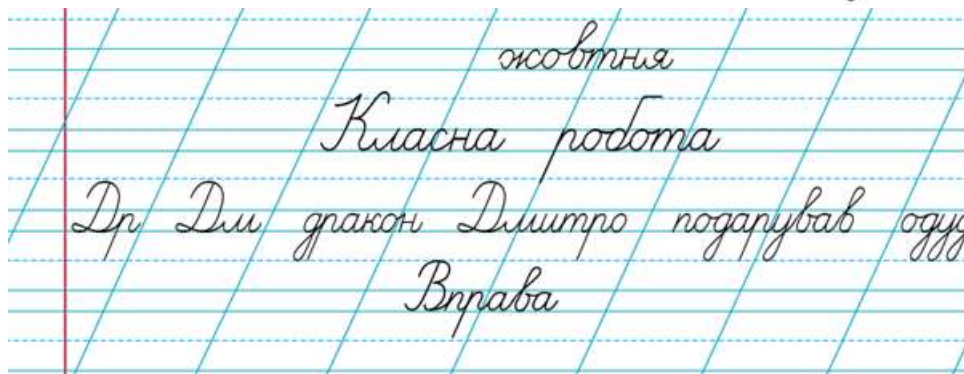 жовтня
Класна робота
Др Дм дракон Дмитро подарував
Вправа